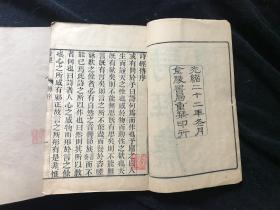 光緒二十二年冬月
金陵書局重栞印行
詩經傳序
或有問於予曰詩何爲而作也予應之曰人
生而靜天之性也感於物而動性之欲也夫
既有欲矣則不能無思既有思矣則不能無
言既有言矣則言之所不能盡而發於咨嗟
詠歎之餘者必有自然之音響節族而不
能已焉此詩之所以作也曰然則其所以教者
何也曰詩者人心之感物而形於言之餘也
心之所感有邪正故言之所形有是非惟